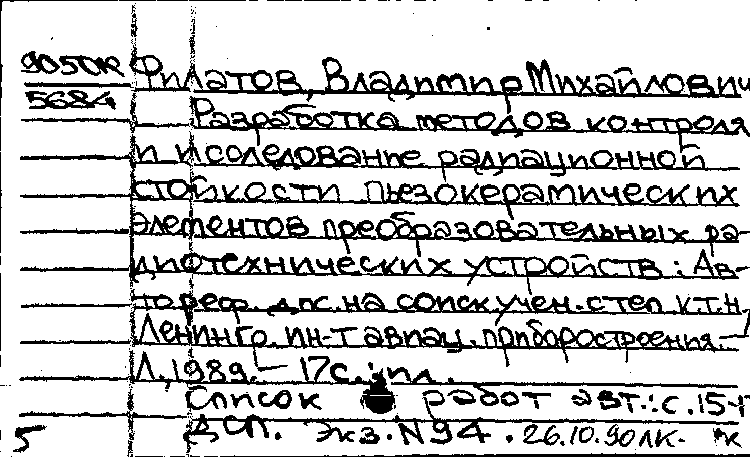 9050К Филатов, Владимир Михайлович
5684 Разработка методов контроля
и исследование радиационной
стойкости пьезокерамических
элементов преобразовательных ра-
диотехнических устройств: Ав-
тореф. дис. на соиск. учен. степ к.т.н,
Ленингр. ин-т авиац. приборостроения. —
Л., 1989. — 17с. : ил.
Список работ авт.: с. 15-1
5 ДСП. Экз. N94. 26.10.90